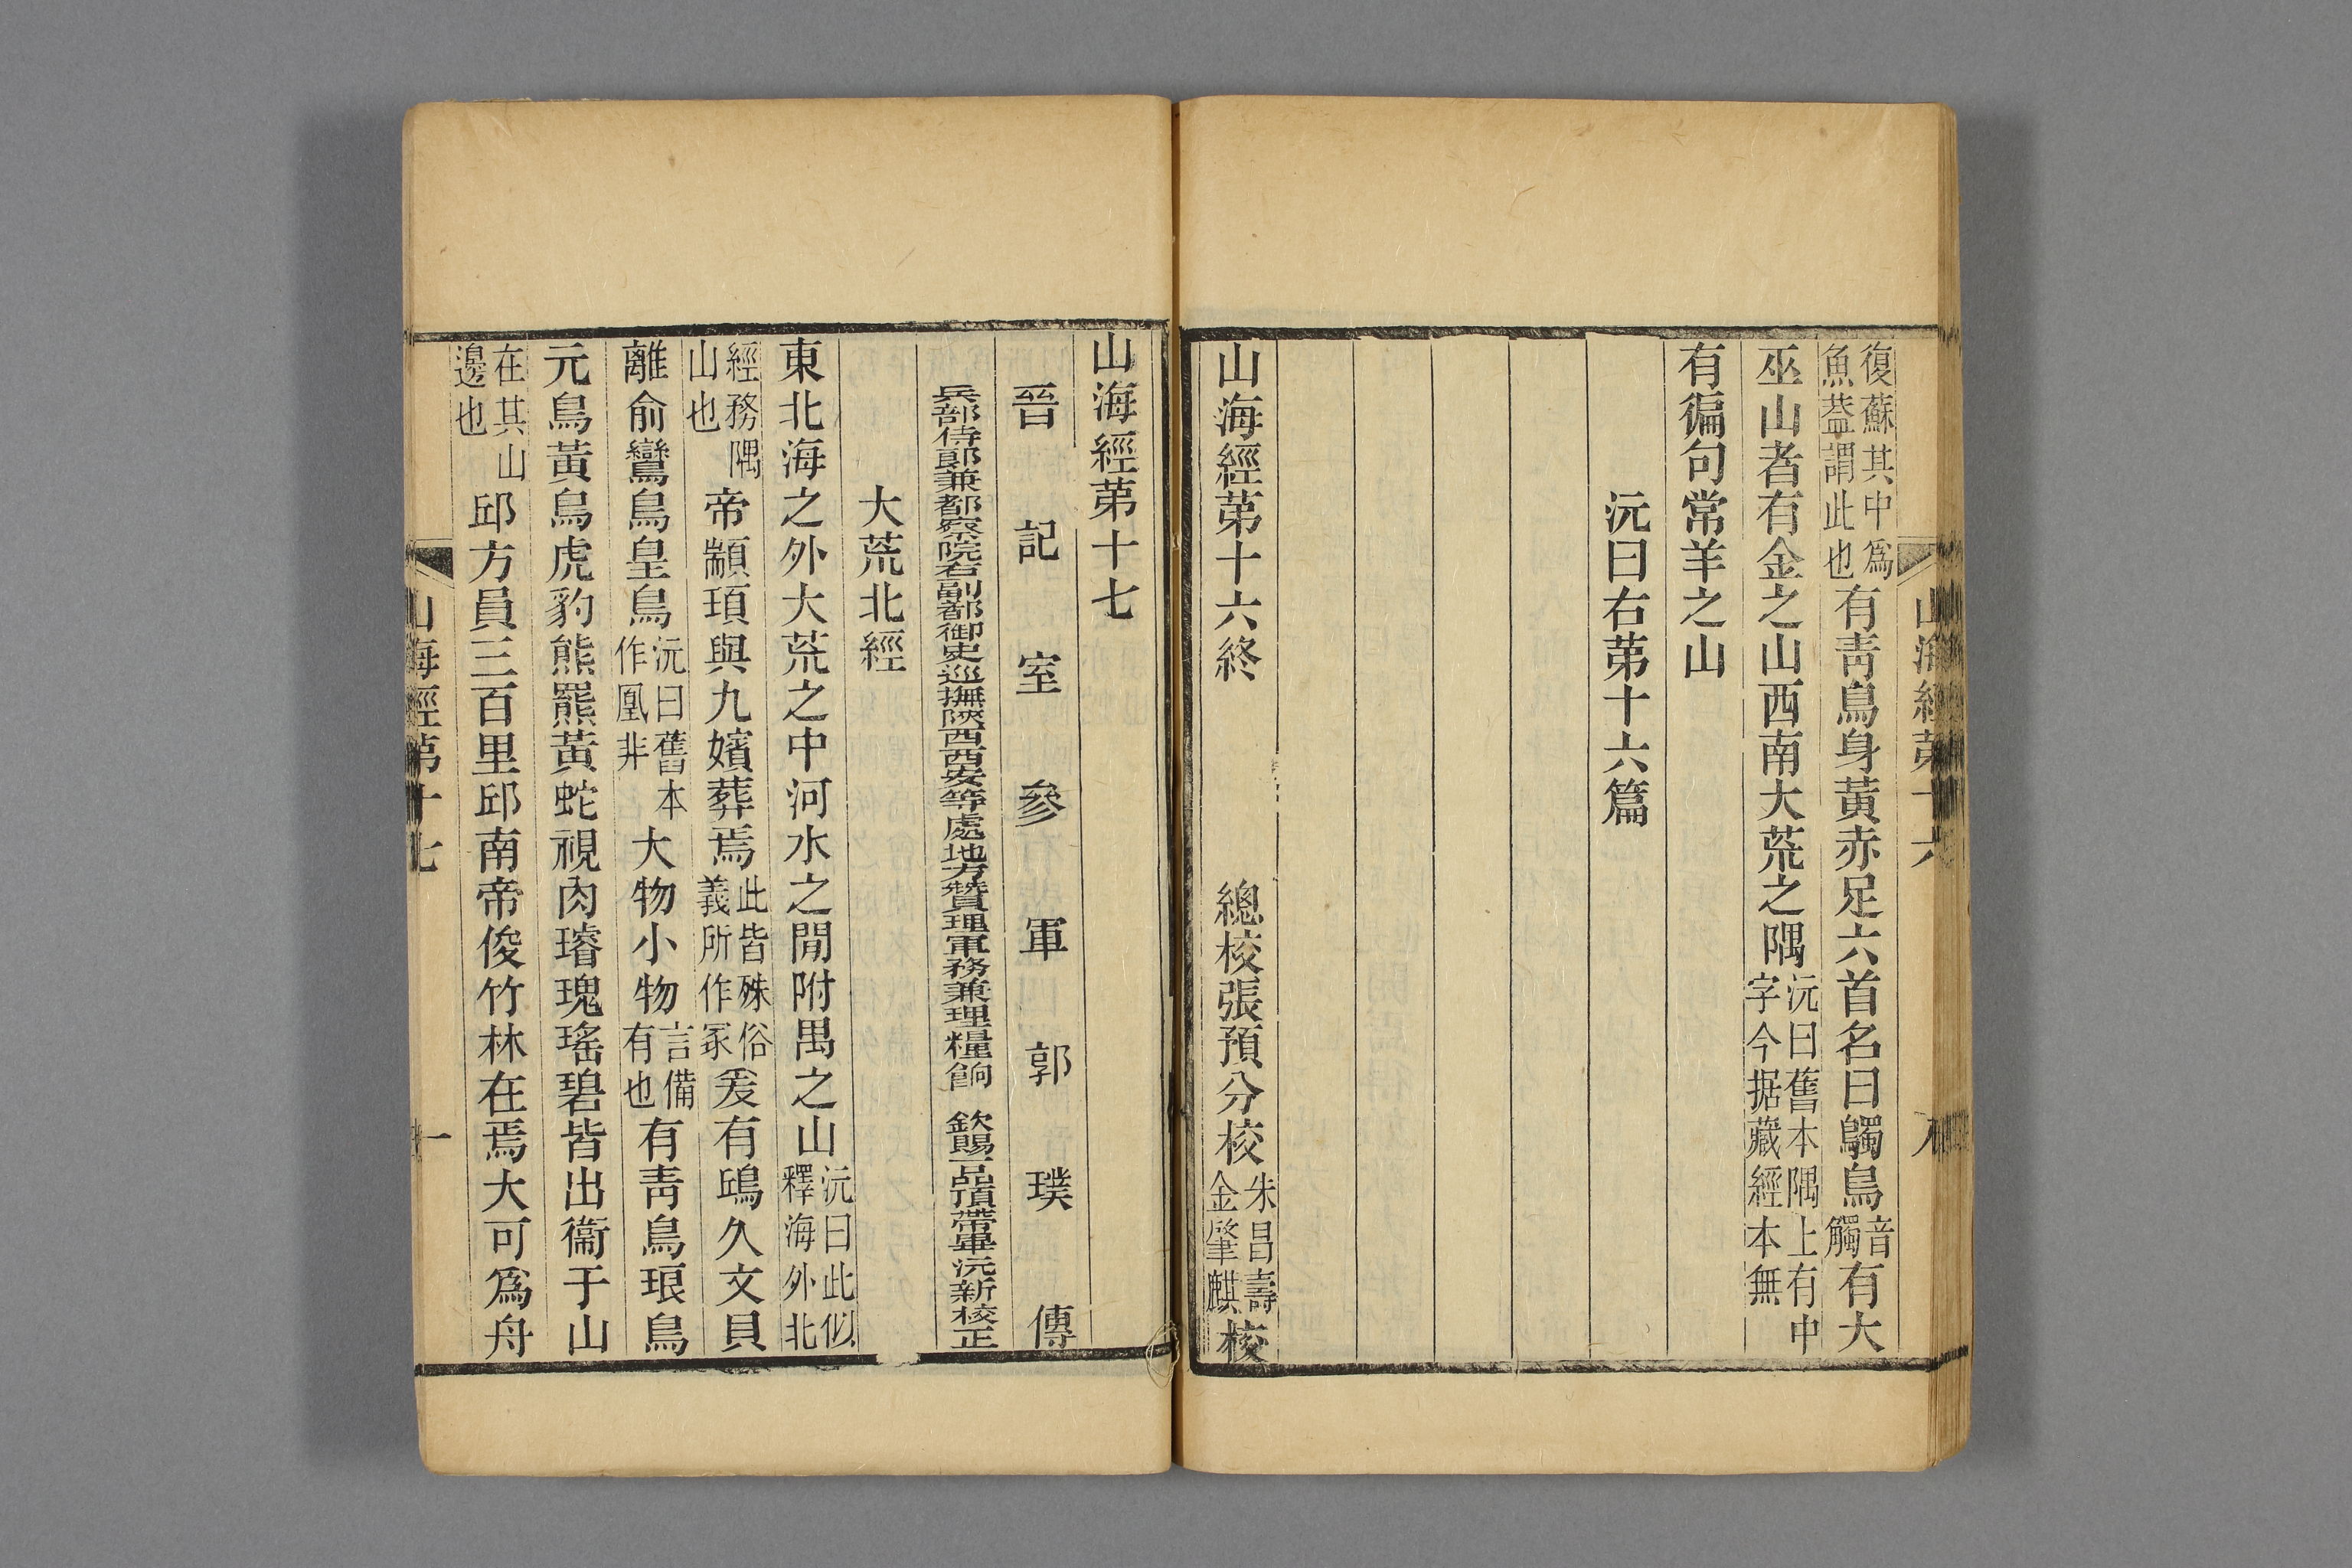 山海經第十六
八
復蘇其中為
魚葢謂此也
有青鳥身黃赤足六首名曰鸀鳥
音
觸
有大
巫山者有金之山西南大荒之隅
沅曰舊本隅上有中
字今据藏經本無
有偏句常羊之山
沅曰右第十六篇
山海經第十六終
總校張預分校
朱昌壽
金肇麒
校
山海經第十七
晉記室參軍郭璞傳
兵部侍郎兼都察院右副都御史巡撫陝西西安等處地方贊理軍務兼理糧餉 欽賜一品頂帶畢沅新校正
大荒北經
東北海之外大荒之中河水之閒附禺之山
沅曰此似
釋海外北
經務隅
山也
帝顓頊與九嬪葬焉
此皆殊俗
義所作冢
爰有鴟久文貝
離俞鸞鳥皇鳥
沅曰舊本
作凰非
大物小物
言備
有也
有青鳥琅鳥
元鳥黃鳥虎豹熊羆黃蛇視肉璿瑰瑤碧皆出衞于山
在其山
邊也
邱方員三百里邱南帝俊竹林在焉大可為舟
山海經第十七
一